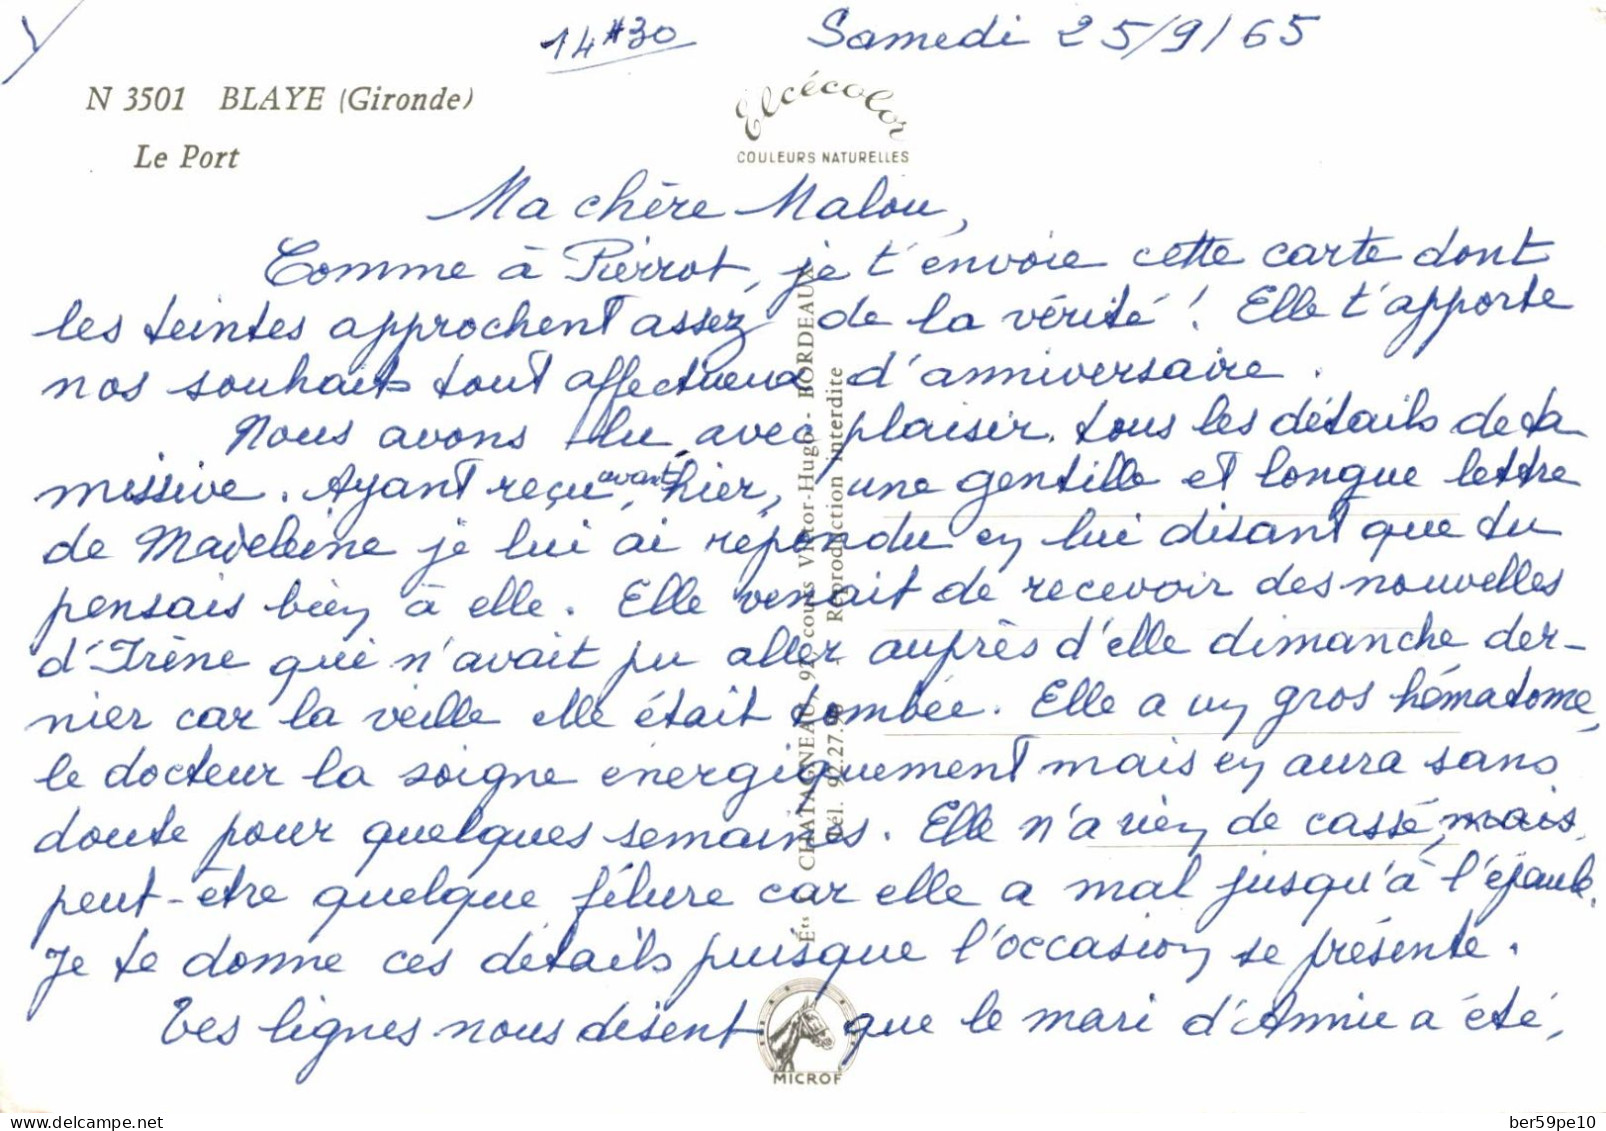 14 H 30 Samedi 25/9/65
N 3501 BLAYE (Gironde)
Le Port
Elcécolor
COULEURS NATURELLES
Ma chère Malou,
Comme à Pierrot, je t'envoie cette carte dont
les teintes approchent assez de la vérité ! Elle t'apporte
nos souhaits tout affectueux d'anniversaire.
Nous avons lu avec plaisir tous les détails de ta
missive. Ayant reçu avant hier, une gentille et longue lettre
de Madeleine je lui ai répondu en lui disant que tu
pensais bien à elle. Elle venait de recevoir des nouvelles
d'Irène qui n'avait pu aller auprès d'elle dimanche der-
nier car la veille elle était tombée. Elle a un gros hématome,
le docteur la soigne énergiquement mais en aura sans
doute pour quelques semaines. Elle n'a rien de cassé, mais
peut-être quelque fêlure car elle a mal jusqu'à l'épaule.
Je te donne ces détails puisque l'occasion se présente.
Tes lignes nous disent que le mari d'Annie a été,
Éts CHATAGNEAU, cours Victor-Hugo - BORDEAUX
Tél. 92.27. Reproduction interdite
MICROF
delcampe.net
ber59pe10